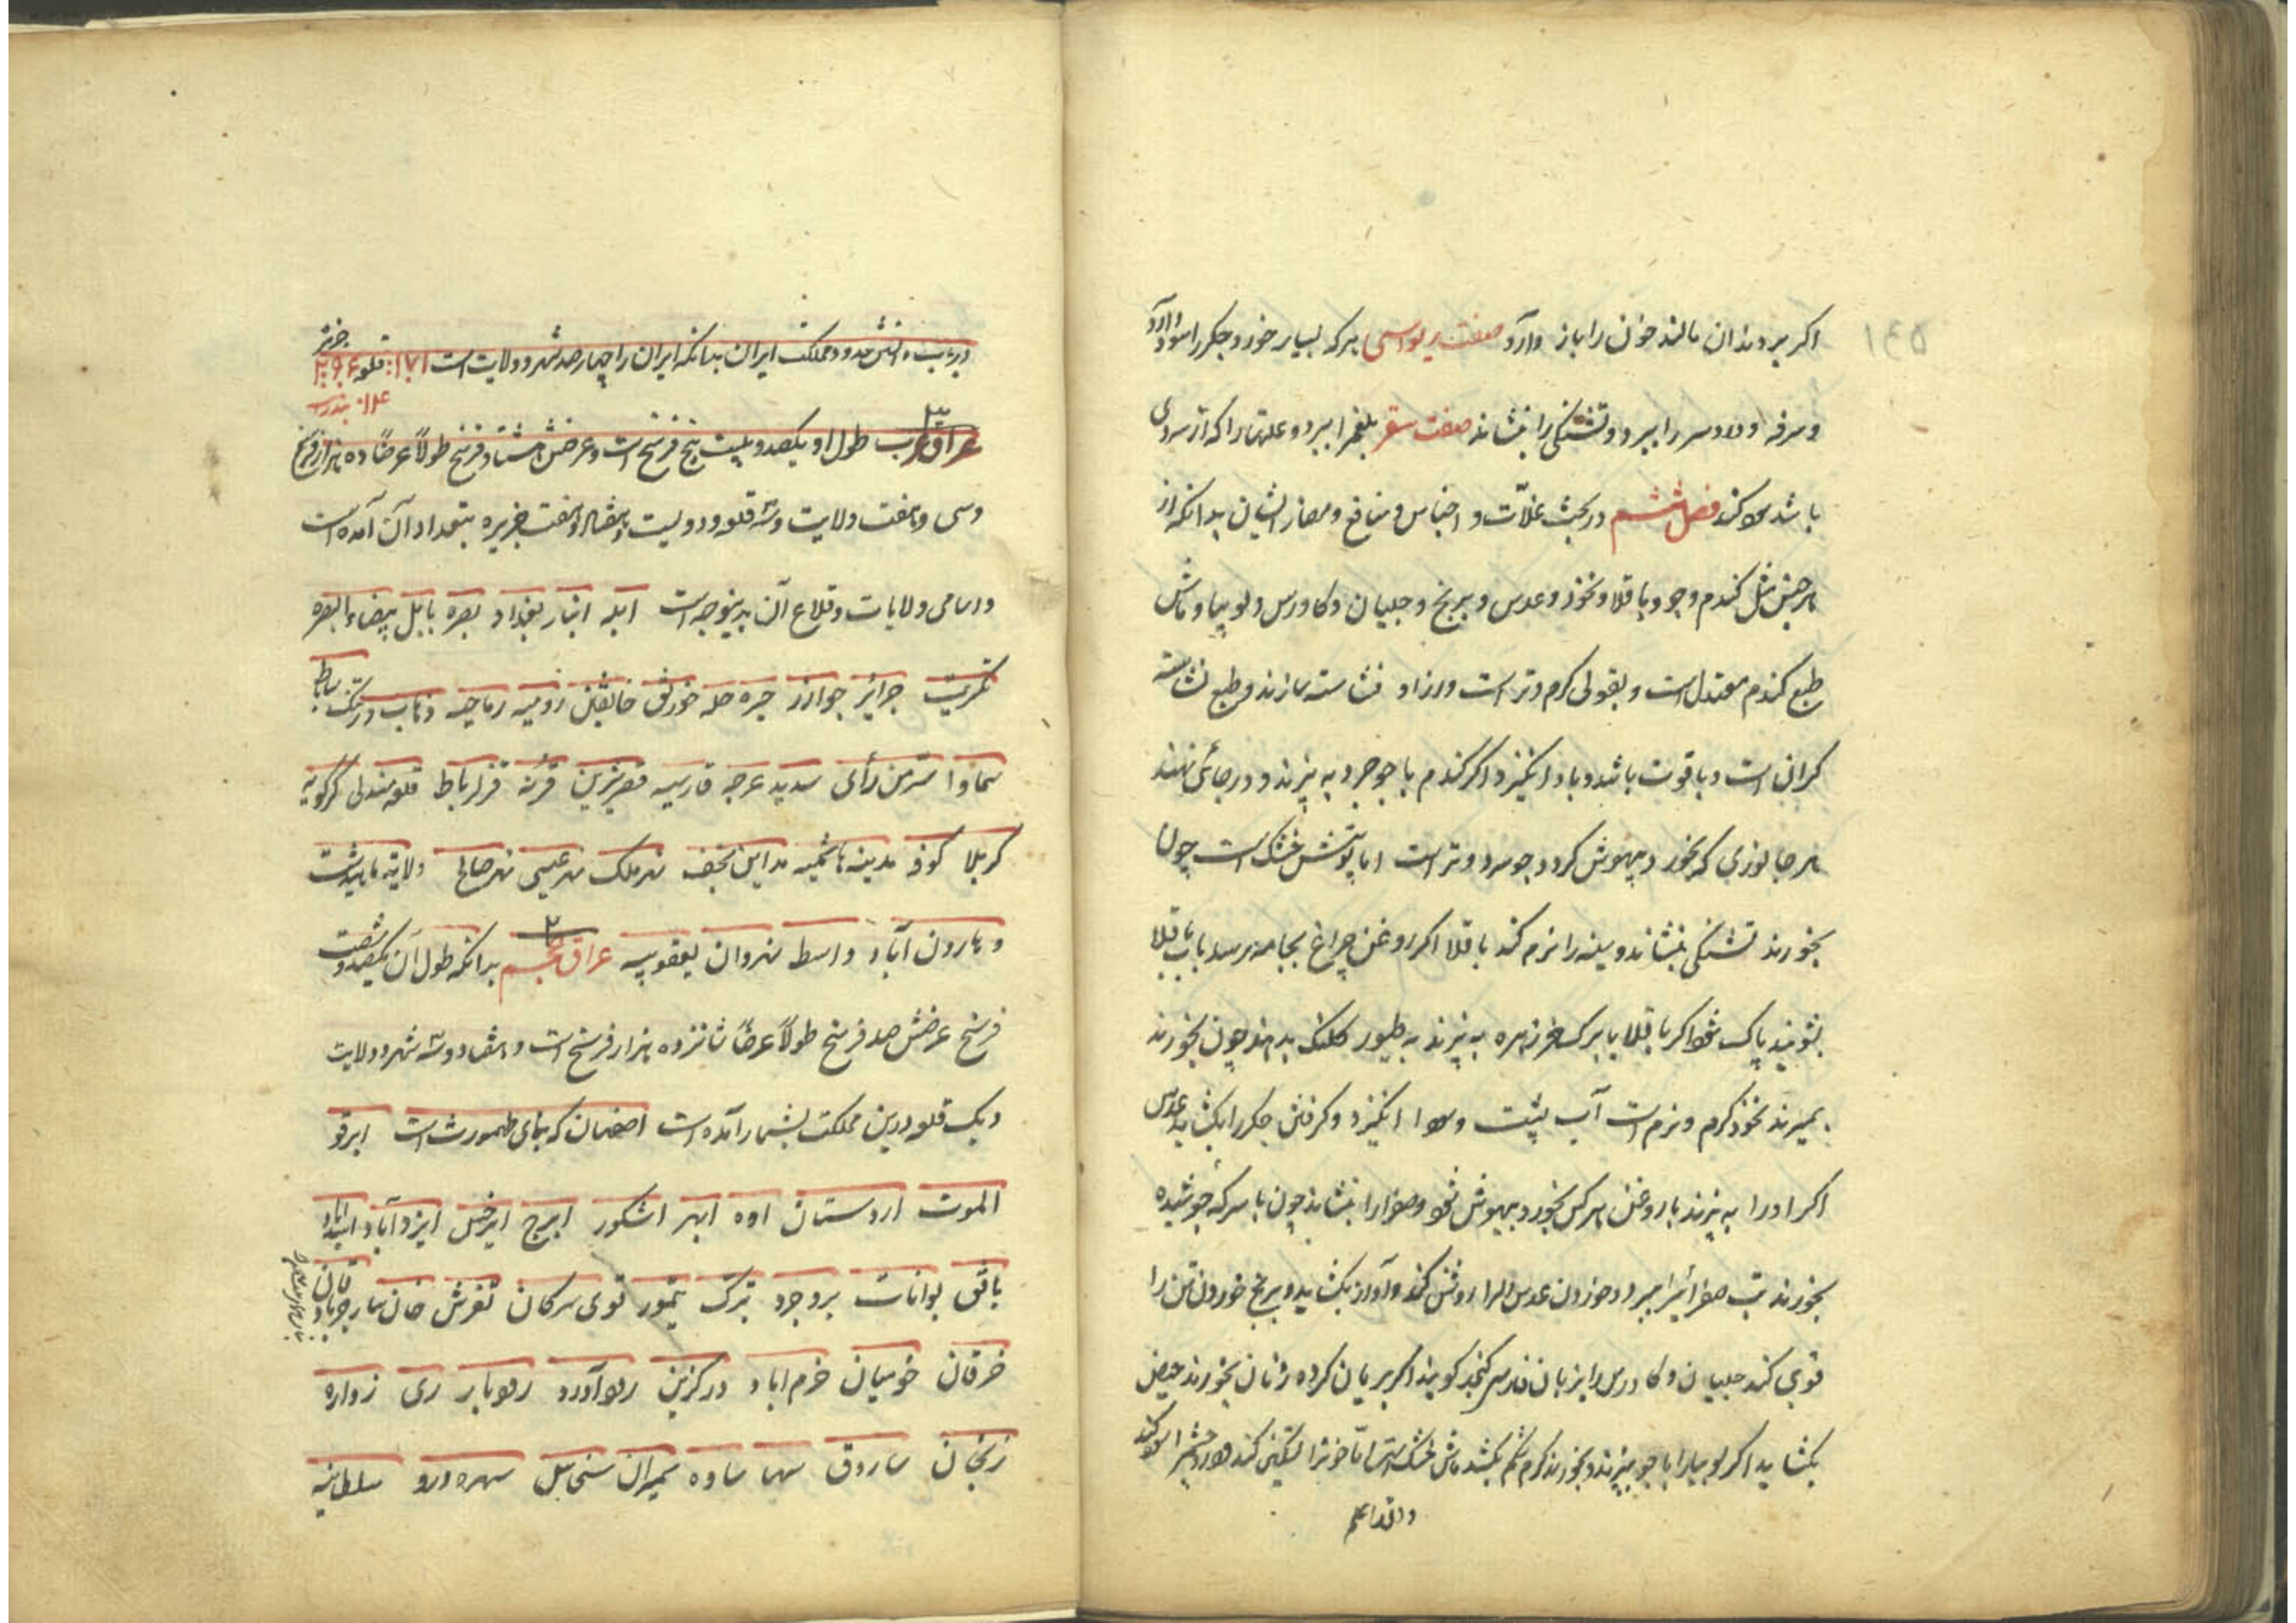 ١٤٥
اکر بر دندان مالند خون را باز دارد صفت ریواسی هر که بسیار خورد جکر را سود دارد
و سرفه و درد سر را ببرد و تشنکی را بنشاند صفت سقز بلغم را ببرد و علتها را که از سردی
باشد کند فصل ششم در بحث غلّات و اجناس و منافع و مضار ایشان بدانکه از
هر جنس مثل کندم و جو و باقلا و نخود و عدس و برنج و جلبان و کاورس و لوبیا و ماش
طبع کندم معتدل است و بقولی کرم و تر است و از او نشاسته سازند و طبع نشاسته
کران است و با قوت باشد و باد انکیزد اکر کندم با جوجرو به پزند و در جائی نهند
هر جانوری که بخورد بیهوش کردد جو سرد و تر است اما پوستش خشک است چون
بخورند تشنکی بنشاند و سینه را نرم کند باقلا اکر روغن چراغ بجامه رسد باب باقلا
بشویند پاک شود اکر باقلا با برک خرزهره به پزند به طیور کلنک بدهند چون بخورند
بمیرند نخود کرم و نرم است آب پشت و انکیزد و کرفتن جکر را بکشاید عدس
اکر او را به پزند با روغن هر کس بخورد بیهوش شود و صفرا را بنشاند چون با سرکه جوشیده
بخورند تب صفرائی را ببرد و خوردن عدس را روشن کند و آواز بکشاید و برنج خوردن تن را
قوی کند جلبان و کاورس را بزبان فارسی کویند اکر بریان کرده زنان بخورند حیض
بکشاید اکر لوبیا را با جو بپزند و بخورند کرم شکم بکشد ماش خشک است امّا خون را تسکین کند
والله اعلم
در حدود مملکت ایران بدانکه ایران را چهار صد شهر و ولایت است ١٧١ قلعه ٢٩٦ جزیره
١٤ بندر
عراق عرب طول او یکصد و بیست پنج فرسخ است و عرضش هشتاد فرسخ طولاً عرضاً ده هزار فرسخ
و سی و هفت ولایت و سه قلعه و دویست و هفتاد و هفت جزیره بتعداد آن آمده است
و اسامی ولایات و قلاع آن بدینوجه است ابله انبار بغداد بصره بابل بیضاء البصره
تکریت جزائر جوازر حیره حله خورنق خانقین رومیه رماحیه ذناب درتنک ساباط
سماوا سرّمن رأی سدید عرجه قادسیه قصر شیرین قرنه قزلرباط قلعه مندلی کرکویه
کربلا کوفه مدینه هاشمیه مداین نجف نهر ملک نهر عیسی نهر صالح ولایة ماهیدشت
و هارون آباد واسط نهروان یعقوبیه عراق عجم بدانکه طول آن یکصد و شصت
فرسخ عرضش صد فرسخ طولاً عرضاً شانزده هزار فرسخ است و هشتاد و سه شهر و ولایت
و یک قلعه درین مملکت بشمار آمده است اصفهان که بنای طهمورث است ابرقو
الموت اردستان اوه ابهر اشکور ایرج ایزدآباد اسدآباد
بافق بوانات بروجرد تبرک تیمور توی سرکان تفرش خان سار جرباد قان
خرقان خرم اباد درکزین رودآورد رودبار ری زواره
زنجان ساروق سها ساوه سمیران سنجابل سهره ورد سلطانیه